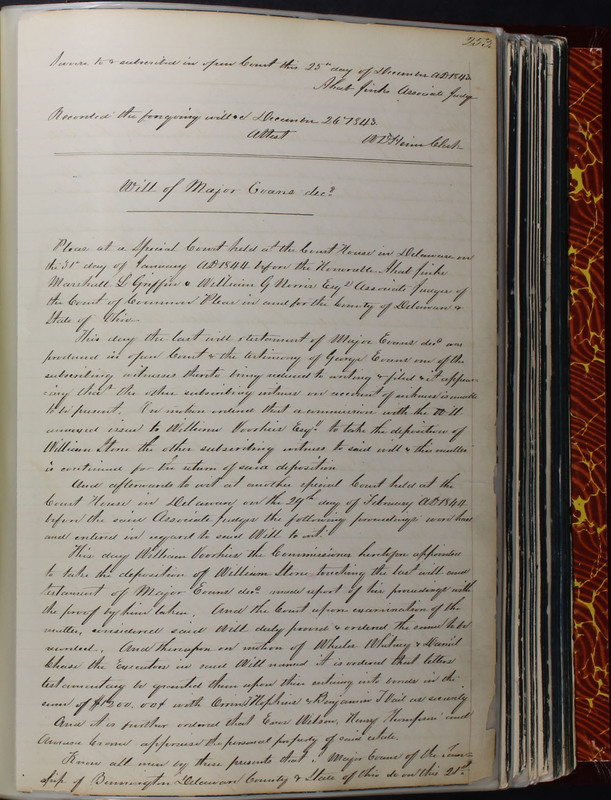 253
Sworn to & subscribed in open Court this 25th day of December AD 1843
Ahab Jinks Associate Judge
Recorded the foregoing will &c December 26th 1843.
Attest
Clerk
Will of Major Evans decd
Pleas at a Special Court held at the Court House in Delaware on
the 31st day of January AD 1844 before the Honorable Ahab Jinks
Marshall L Griffin & William G Norris Esqs Associate Judges of
the Court of Common Pleas in and for the County of Delaware &
State of Ohio.
This day the last will & testament of Major Evans decd was
produced in open Court & the testimony of George Evans one of the
subscribing witnesses thereto being reduced to writing & filed & it appear-
ing that the other subscribing witness on account of sickness is unable
to be present. On motion ordered that a commission with the Will
annexed issue to William Voorhies Esqr. to take the deposition of
William Stone the other subscribing witness to said will & this matter
is continued for the return of said deposition
And afterwards to wit at another special Court held at the
Court House in Delaware on the 29th day of February AD 1844
before the said Associate judges the following proceedings were had
and entered in regard to said Will to wit.
This day William Voorhies the Commissioner heretofore appointed
to take the deposition of William Stone touching the last will and
testament of Major Evans decd made report of his proceedings with
the proof by him taken. And the Court upon examination of the
matter, considered said Will duly proved & ordered the same to be
recorded. And thereupon on motion of Wheeler Whitney & Daniel
Chase the Executors in said Will named it is ordered that letters
testamentary be granted them upon their entering into bonds in the
sum of $1200.00 with Hopkins & Benjamin T Vail as security
And it is further ordered that Wilson, Henry Thompson and
appraise the personal property of said estate.
Know all men by these presents that I Major Evans of the Town-
ship of Bennington Delaware County & State of Ohio do on this 21st